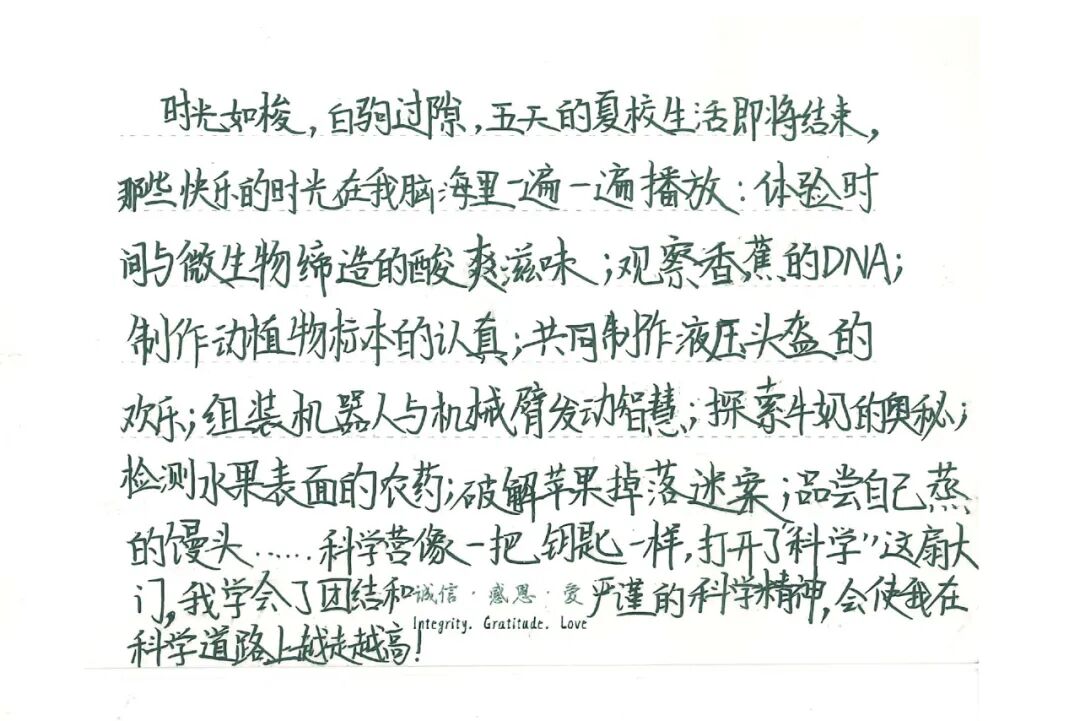 时光如梭，白驹过隙，五天的夏校生活即将结束，
那些快乐的时光在我脑海里一遍一遍播放：体验时
间与微生物缔造的酸爽滋味；观察香蕉的DNA；
制作动植物标本的认真；共同制作液压头盔的
欢乐；组装机器人与机械臂发动智慧；探索牛奶的奥秘；
检测水果表面的农药；破解苹果掉落迷案；品尝自己蒸
的馒头……科学营像一把钥匙一样，打开了“科学”这扇大
门，我学会了团结和诚信·感恩·爱严谨的科学精神，会使我在
Integrity. Gratitude. Love
科学道路上越走越高！